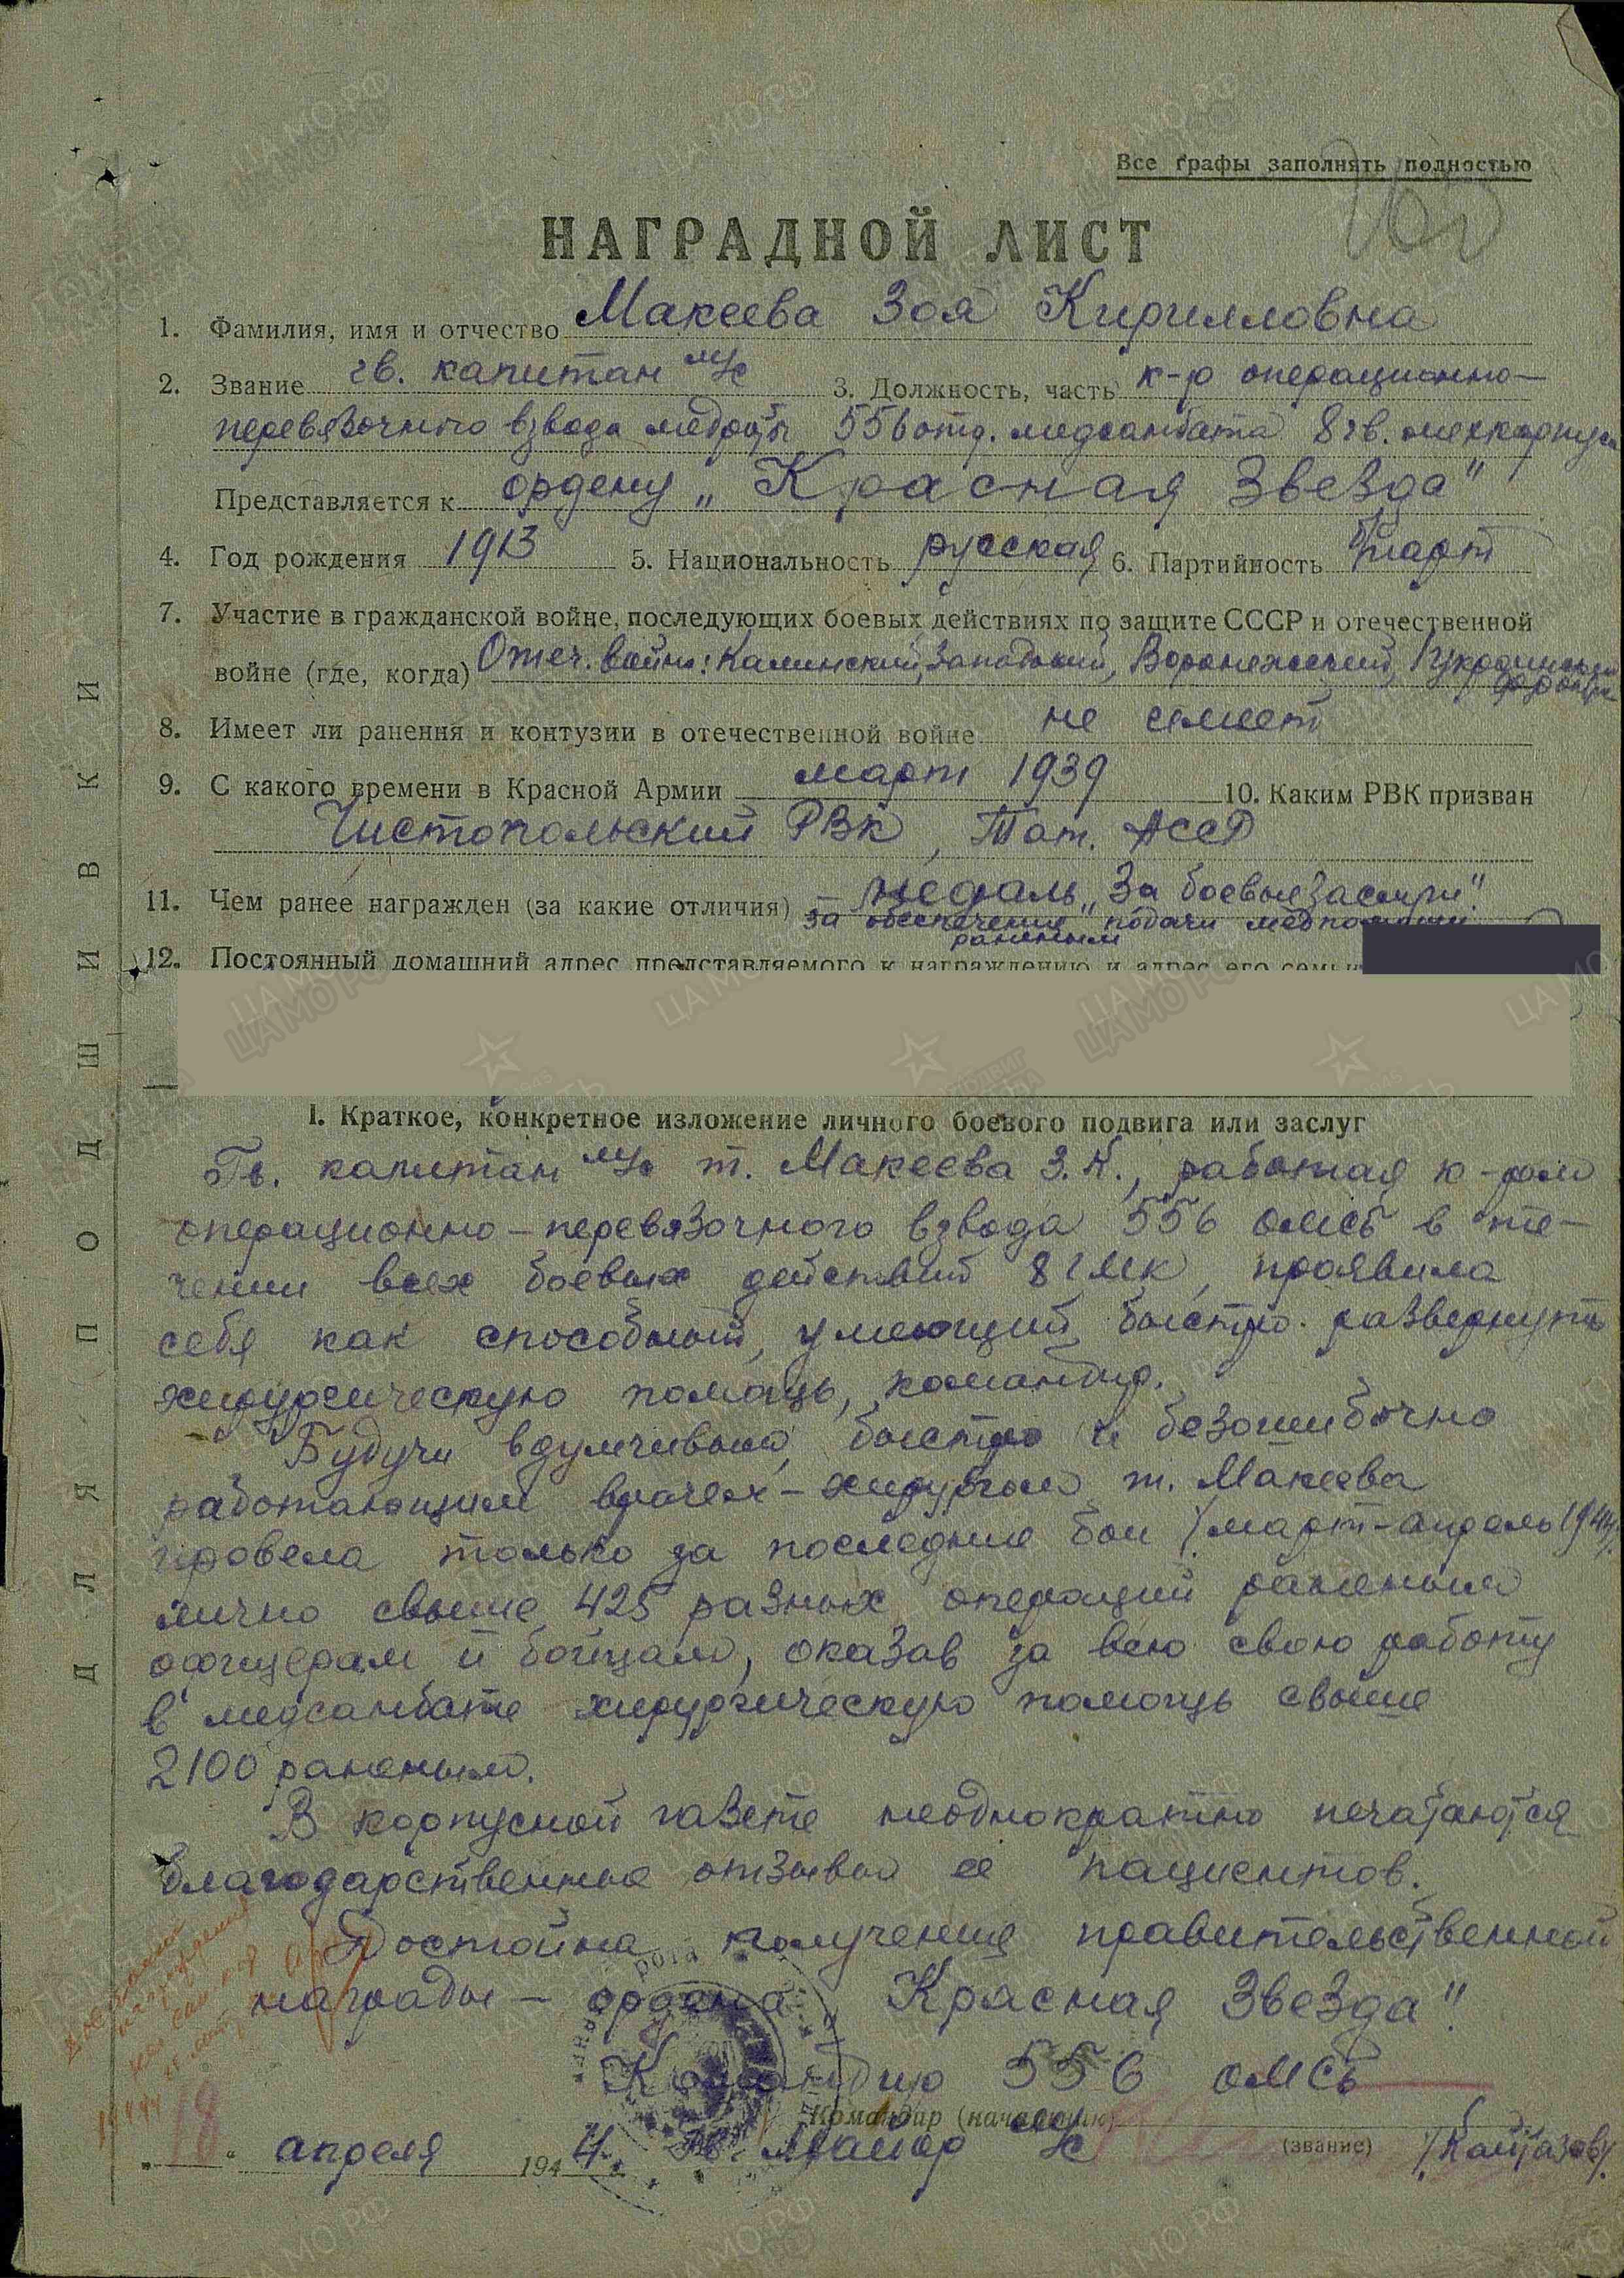 Все графы заполнять полностью
НАГРАДНОЙ ЛИСТ
1. Фамилия, имя и отчество Макеева Зоя Кирилловна
2. Звание гв. капитан м/с 3. Должность, часть к-р операционно-
перевязочного взвода медроты 556 отд. медсанбата 8 гв. мехкорпуса
Представляется к ордену „Красная Звезда"
4. Год рождения 1913 5. Национальность русская 6. Партийность б/парт
7. Участие в гражданской войне, последующих боевых действиях по защите СССР и отечественной
войне (где, когда) Отеч. война: Калинский, Западный, Воронежский, 1 Украинский
фронты
8. Имеет ли ранения и контузии в отечественной войне не имеет
9. С какого времени в Красной Армии март 1939 10. Каким РВК призван
Чистопольский РВК, Тат. АССР
11. Чем ранее награжден (за какие отличия) – медаль „За боевые заслуги"
за обеспечение подачи медпомощи
раненым
12. Постоянный домашний адрес представляемого к награждению и адрес его семьи
I. Краткое, конкретное изложение личного боевого подвига или заслуг
Гв. капитан м/с т. Макеева З.К., работая к-ром
операционно-перевязочного взвода 556 омсб в те-
чении всех боевых действий 8 гмк, проявила
себя как способный, умеющий быстро развернуть
хирургическую помощь, командир.
Будучи вдумчивым, быстро и безошибочно
работающим врачем-хирургом т. Макеева
провела только за последние бои /март-апрель 1944/
лично свыше 425 разных операций раненым
офицерам и бойцам, оказав за всю свою работу
в медсанбате хирургическую помощь свыше
2100 раненым.
В корпусной газете неоднократно печатаются
благодарственные отзывы ее пациентов.
Достойна получения правительственной
награды – ордена „Красная Звезда"!
Командир 556 омсб
Командир (начальник)
„18" апреля 1944 г. гв. Майор м/с (звание)
ДЛЯ ПОДШИВКИ